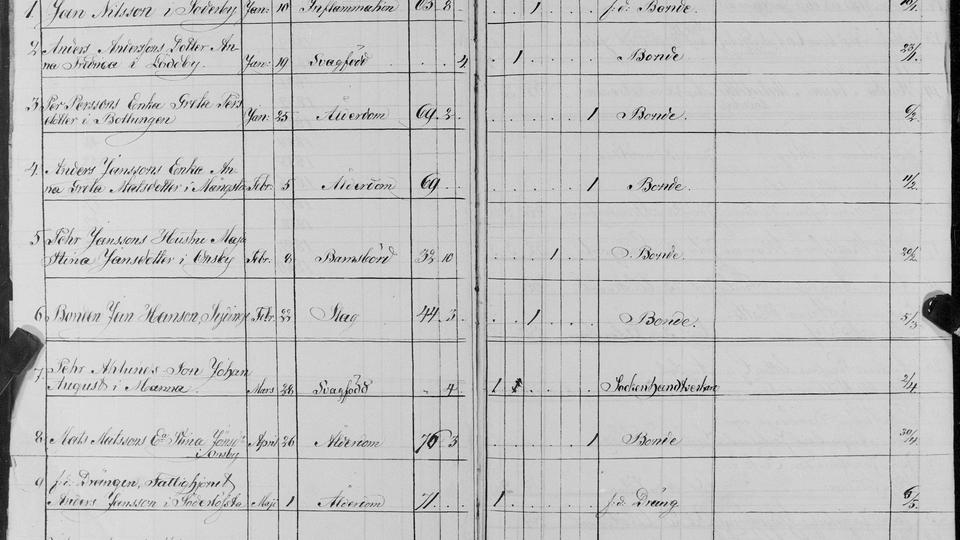 1 Jan Nilsson i Söderby Jan: 10 Inflammation 65 8 . . 1 . . . . f.d. Bonde.
2 Anders Anderssons Dotter An-
na Fredrica i Lödeby. Jan: 19 Svagfödd . . . 4 . 1 . . . . Bonde. 23/4
3 Per Perssons Enka Greta Pers
dotter i Bollungen Jan: 25 Ålderdom 69. 2. . . . . . . 1 Bonde. 6/2
4 Anders Janssons Enka An-
na Greta Matsdotter i Mångsta Febr. 5 Ålderdom 69 . . . . . . . 1 Bonde. 11/2
5 Pehr Janssons Hustru Maja
Stina Jansdotter i Ensby Febr. 8 Barnsbörd 32 10 . . . . 1 . . Bonde. 20/2
6 Bonden Jan Hanson, Febr. 22 Slag 44. 3. . . 1 . . . . Bonde. 5/3
7 Pehr Ahlunds Son Johan
August i Manna Mars 28 Svagfödd " 4 1 1 . . . . Sockenhandtverkare 2/4
8 Mats Matssons Ea Stina Jansd:r
i Ensby April 26 Ålderdom 76. 3 . . . . . . 1 Bonde 30/4
9 f.d. Drängen, Fattighjonet
Anders Jansson i Maji 1 Ålderdom 71. . . 1 . . . . . f.d. Dräng. 6/5